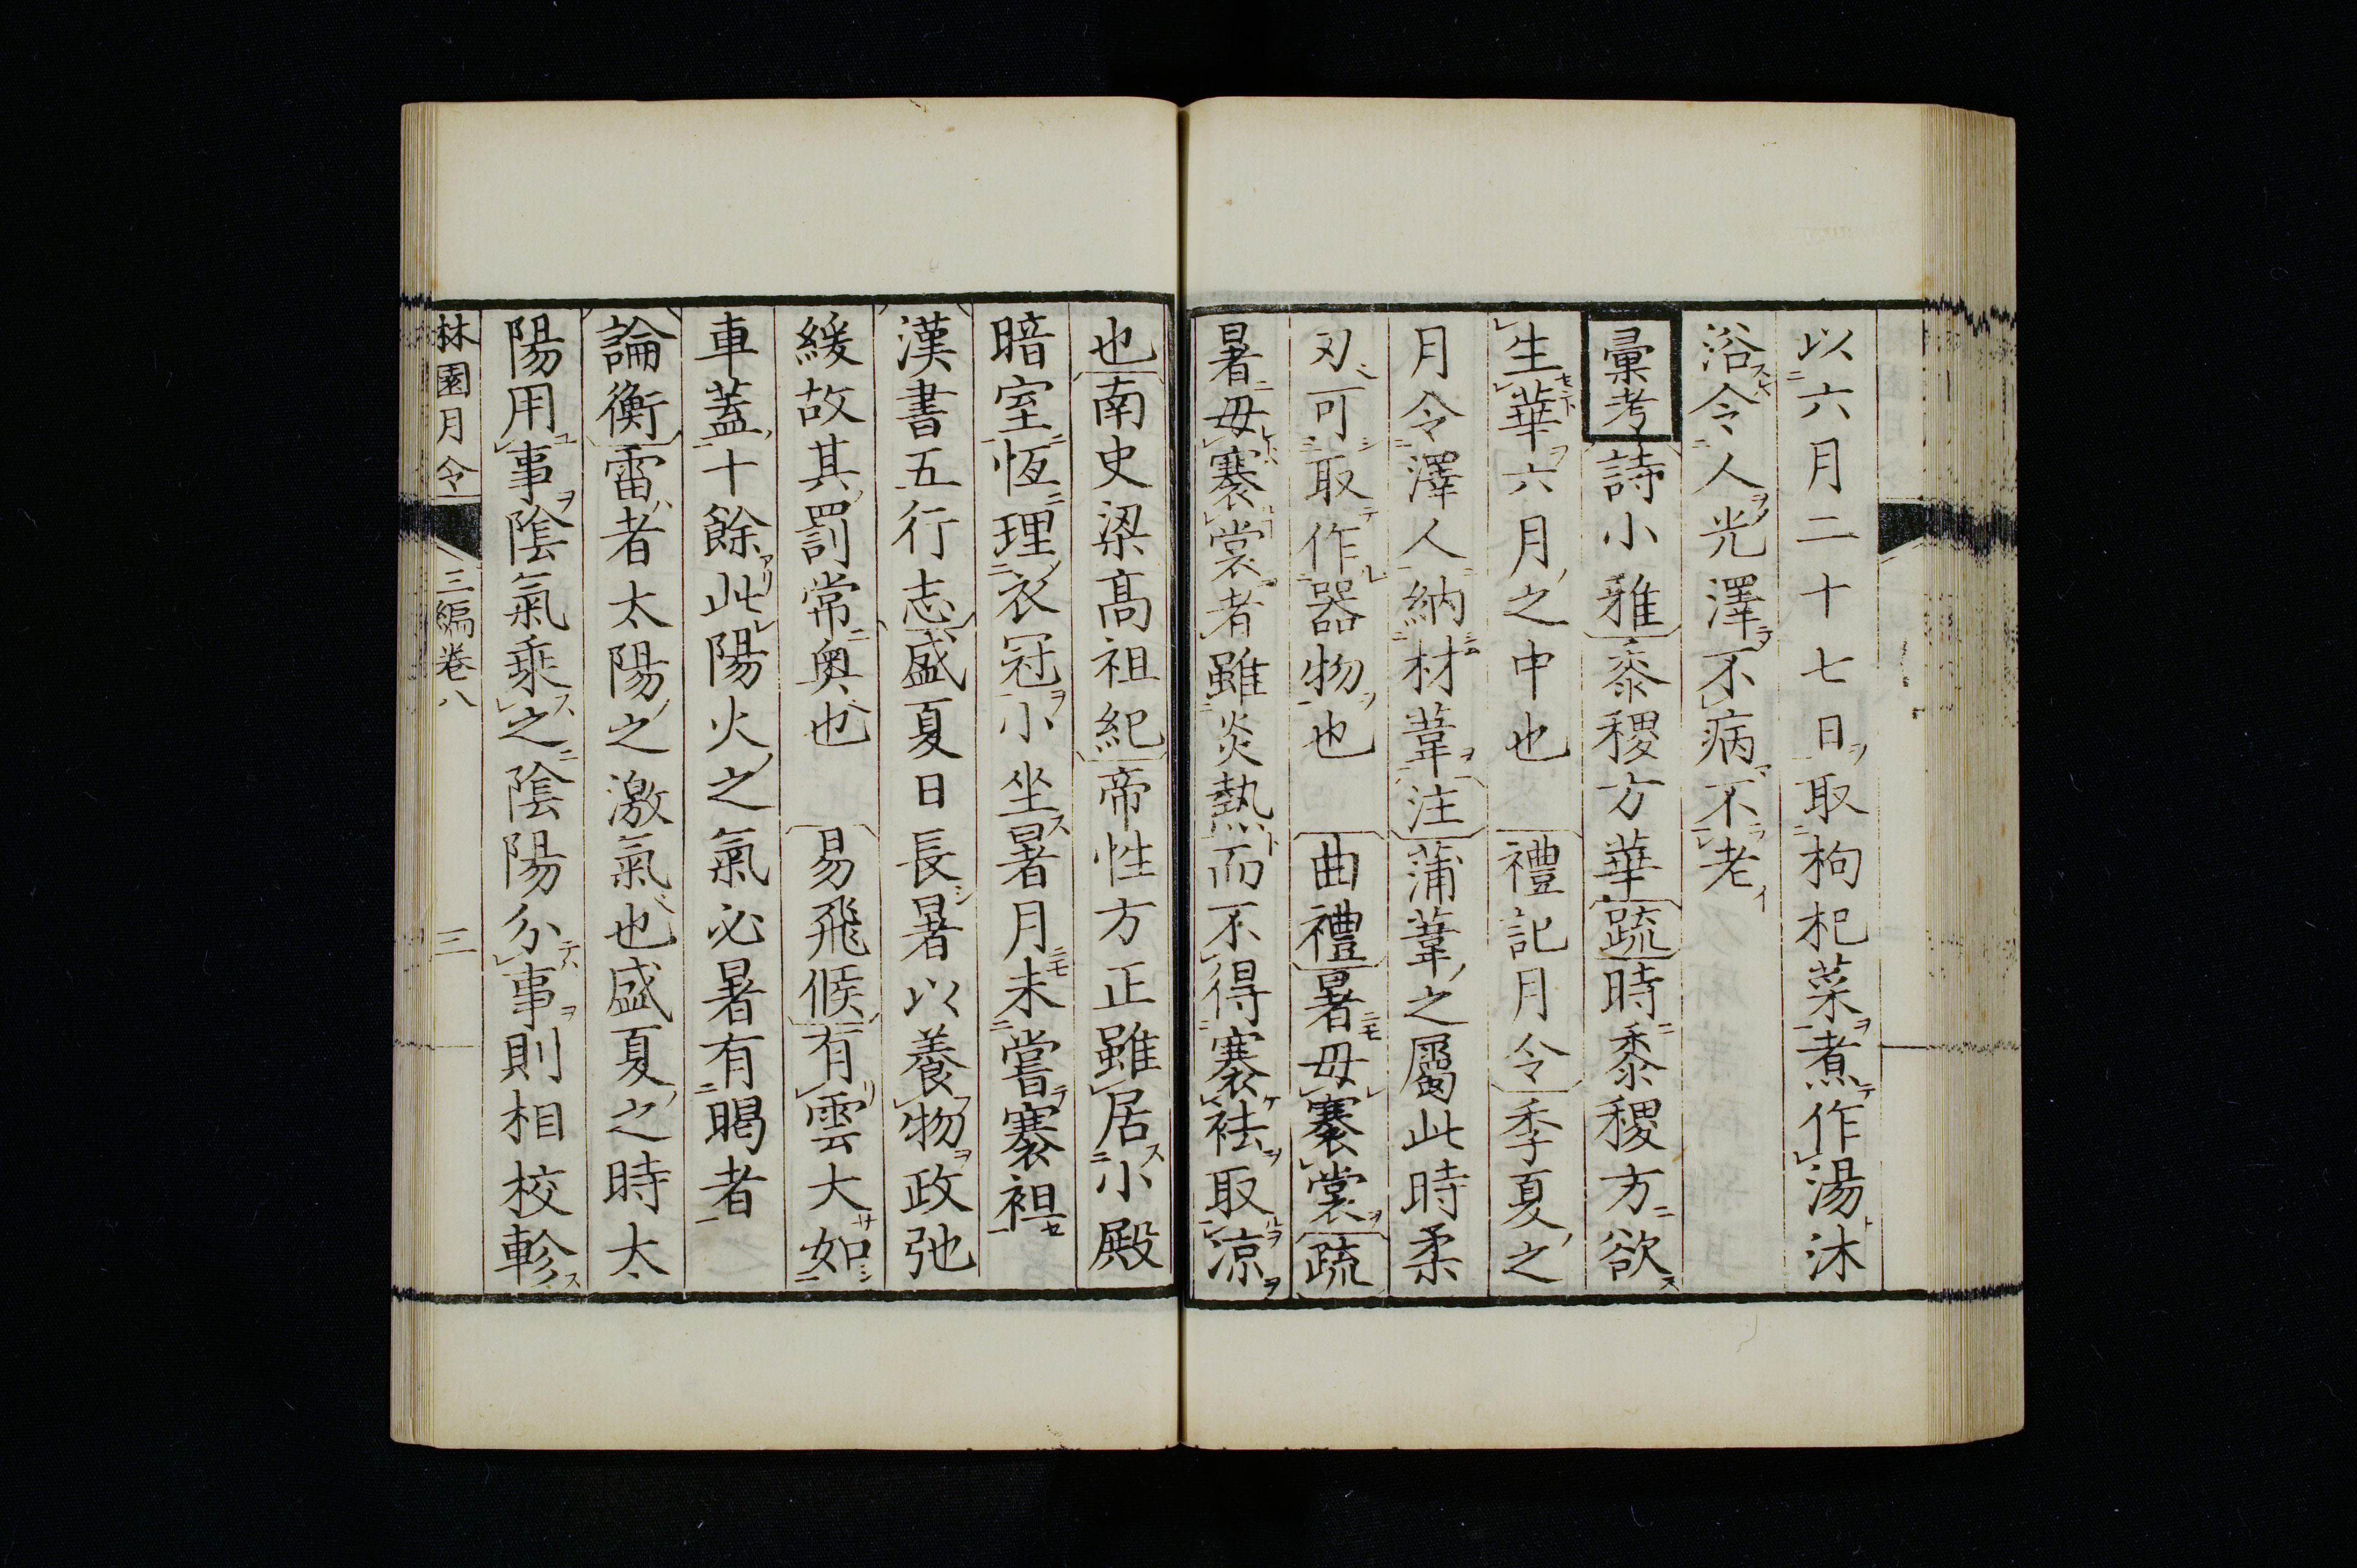 以六月二十七日取枸杞菜煮作湯沐
浴令人光澤不病不老
彙考詩小雅黍稷方華疏時黍稷方欲
生華六月之中也　禮記月令季夏之
月令澤人納材葦注蒲葦之屬此時柔
刃可取作器物也　曲禮暑毋褰裳疏
暑毋褰裳者雖炎熱而不得褰袪取涼
也南史梁高祖紀帝性方正雖居小殿
暗室恆理衣冠小坐暑月未嘗褰袒
漢書五行志盛夏日長暑以養物政弛
緩故其罰常奥也　易飛候有雲大如
車蓋十餘此陽火之氣必暑有暍者
論衡雷者太陽之激氣也盛夏之時太
陽用事陰氣乘之陰陽分事則相校軫
林園月令　三編卷八　三